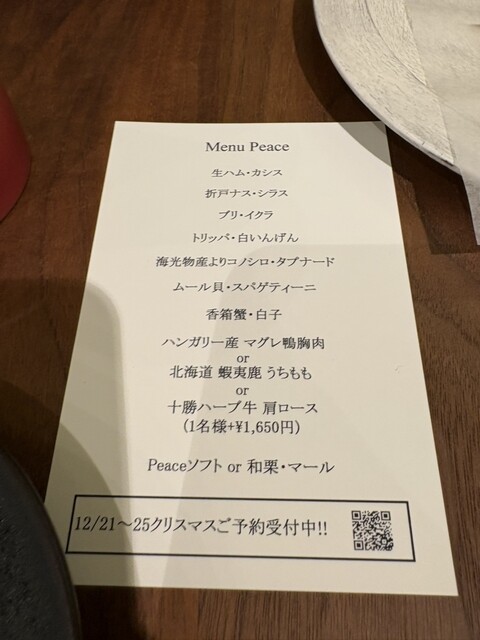 Menu Peace
生ハム・カシス
折戸ナス・シラス
ブリ・イクラ
トリッパ・白いんげん
海光物産よりコノシロ・タプナード
ムール貝・スパゲティーニ
香箱蟹・白子
ハンガリー産 マグレ鴨胸肉
or
北海道 蝦夷鹿 うちもも
or
十勝ハーブ牛 肩ロース
(1名様+¥1,650円)
Peaceソフト or 和栗・マール
12/21～25クリスマスご予約受付中!!